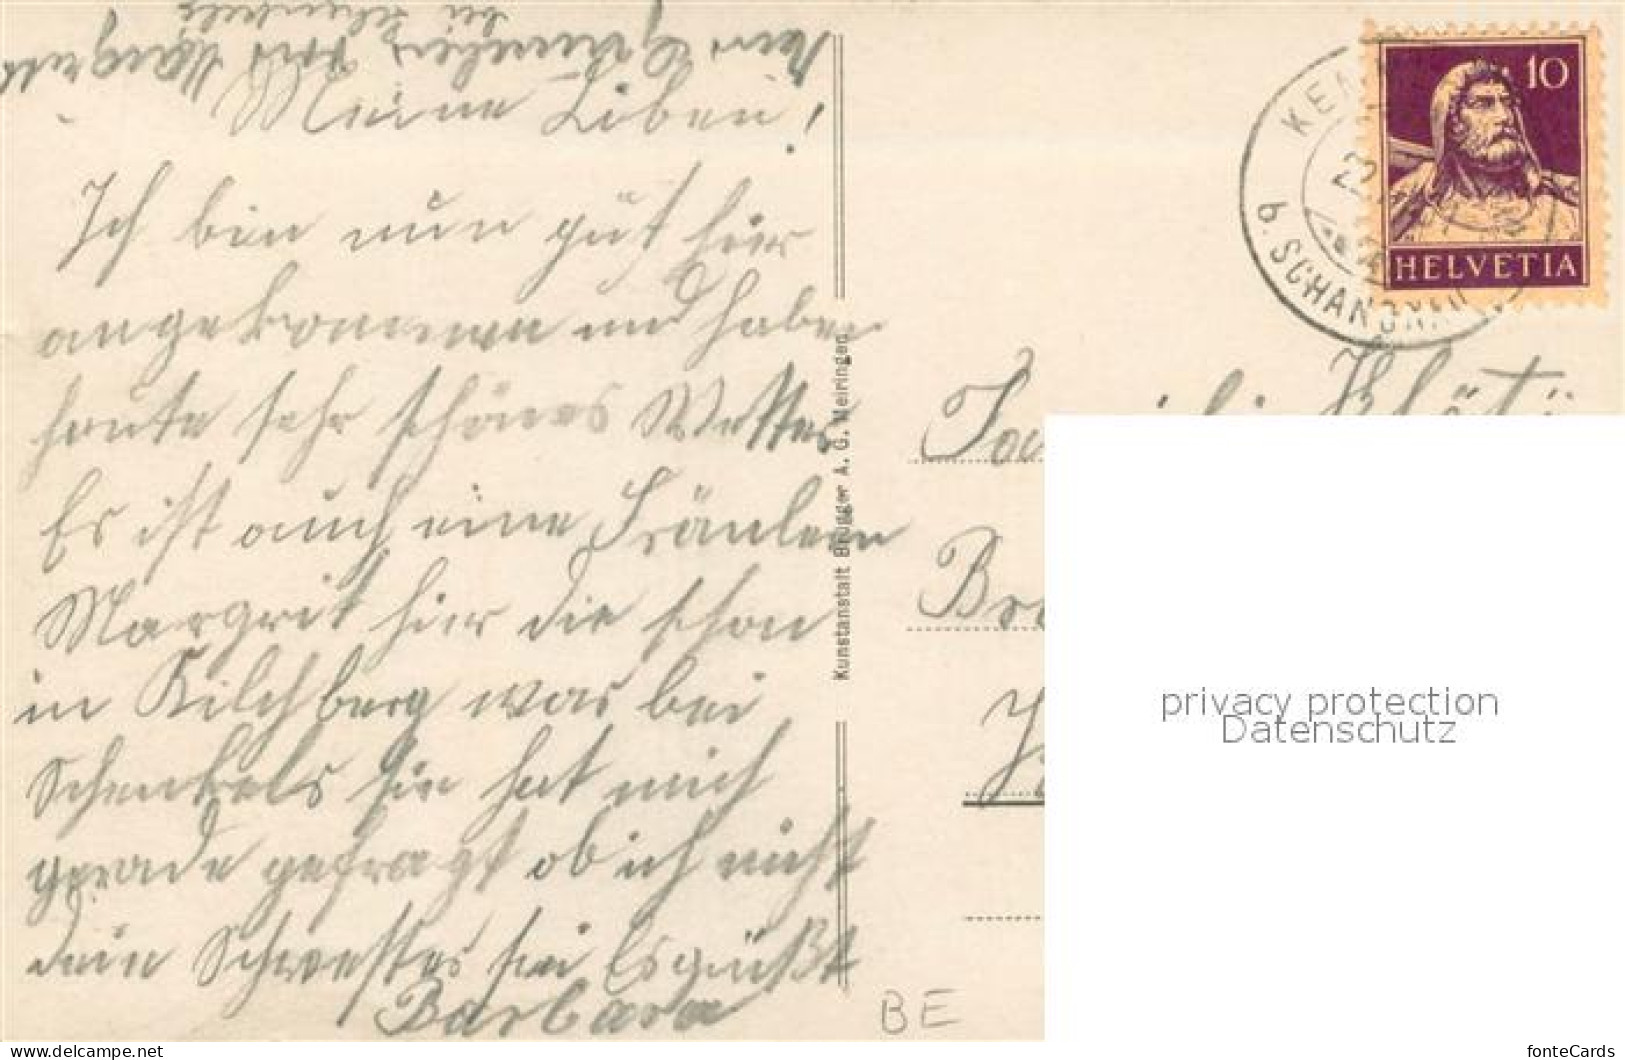 Meine Lieben!
Ich bin nun gut hier
angekommen und haben
heute sehr schönes Wetter
Es ist auch eine Fräulein
Margrit hier die schon
in Kilchberg war bei
Schenkels sie hat mich
gerade gefragt ob ich nicht
dein Schwester sei Es grüßt
Barbara
BE
Kunstanstalt Brügger A. G. Meiringen
10
HELVETIA
KEM
b. SCHANGNAU
privacy protection
Datenschutz
www.delcampe.net
fonteCards